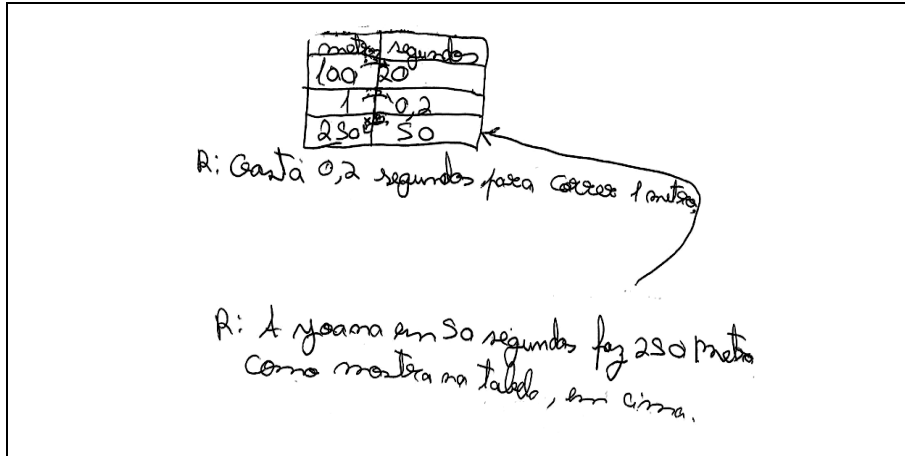 metros segundos
100 20
1 0,2
250 50
R: Gasta 0,2 segundos para correr 1 metro.
R: A Joana em 50 segundos faz 250 metro
como mostra na tabela, em cima.